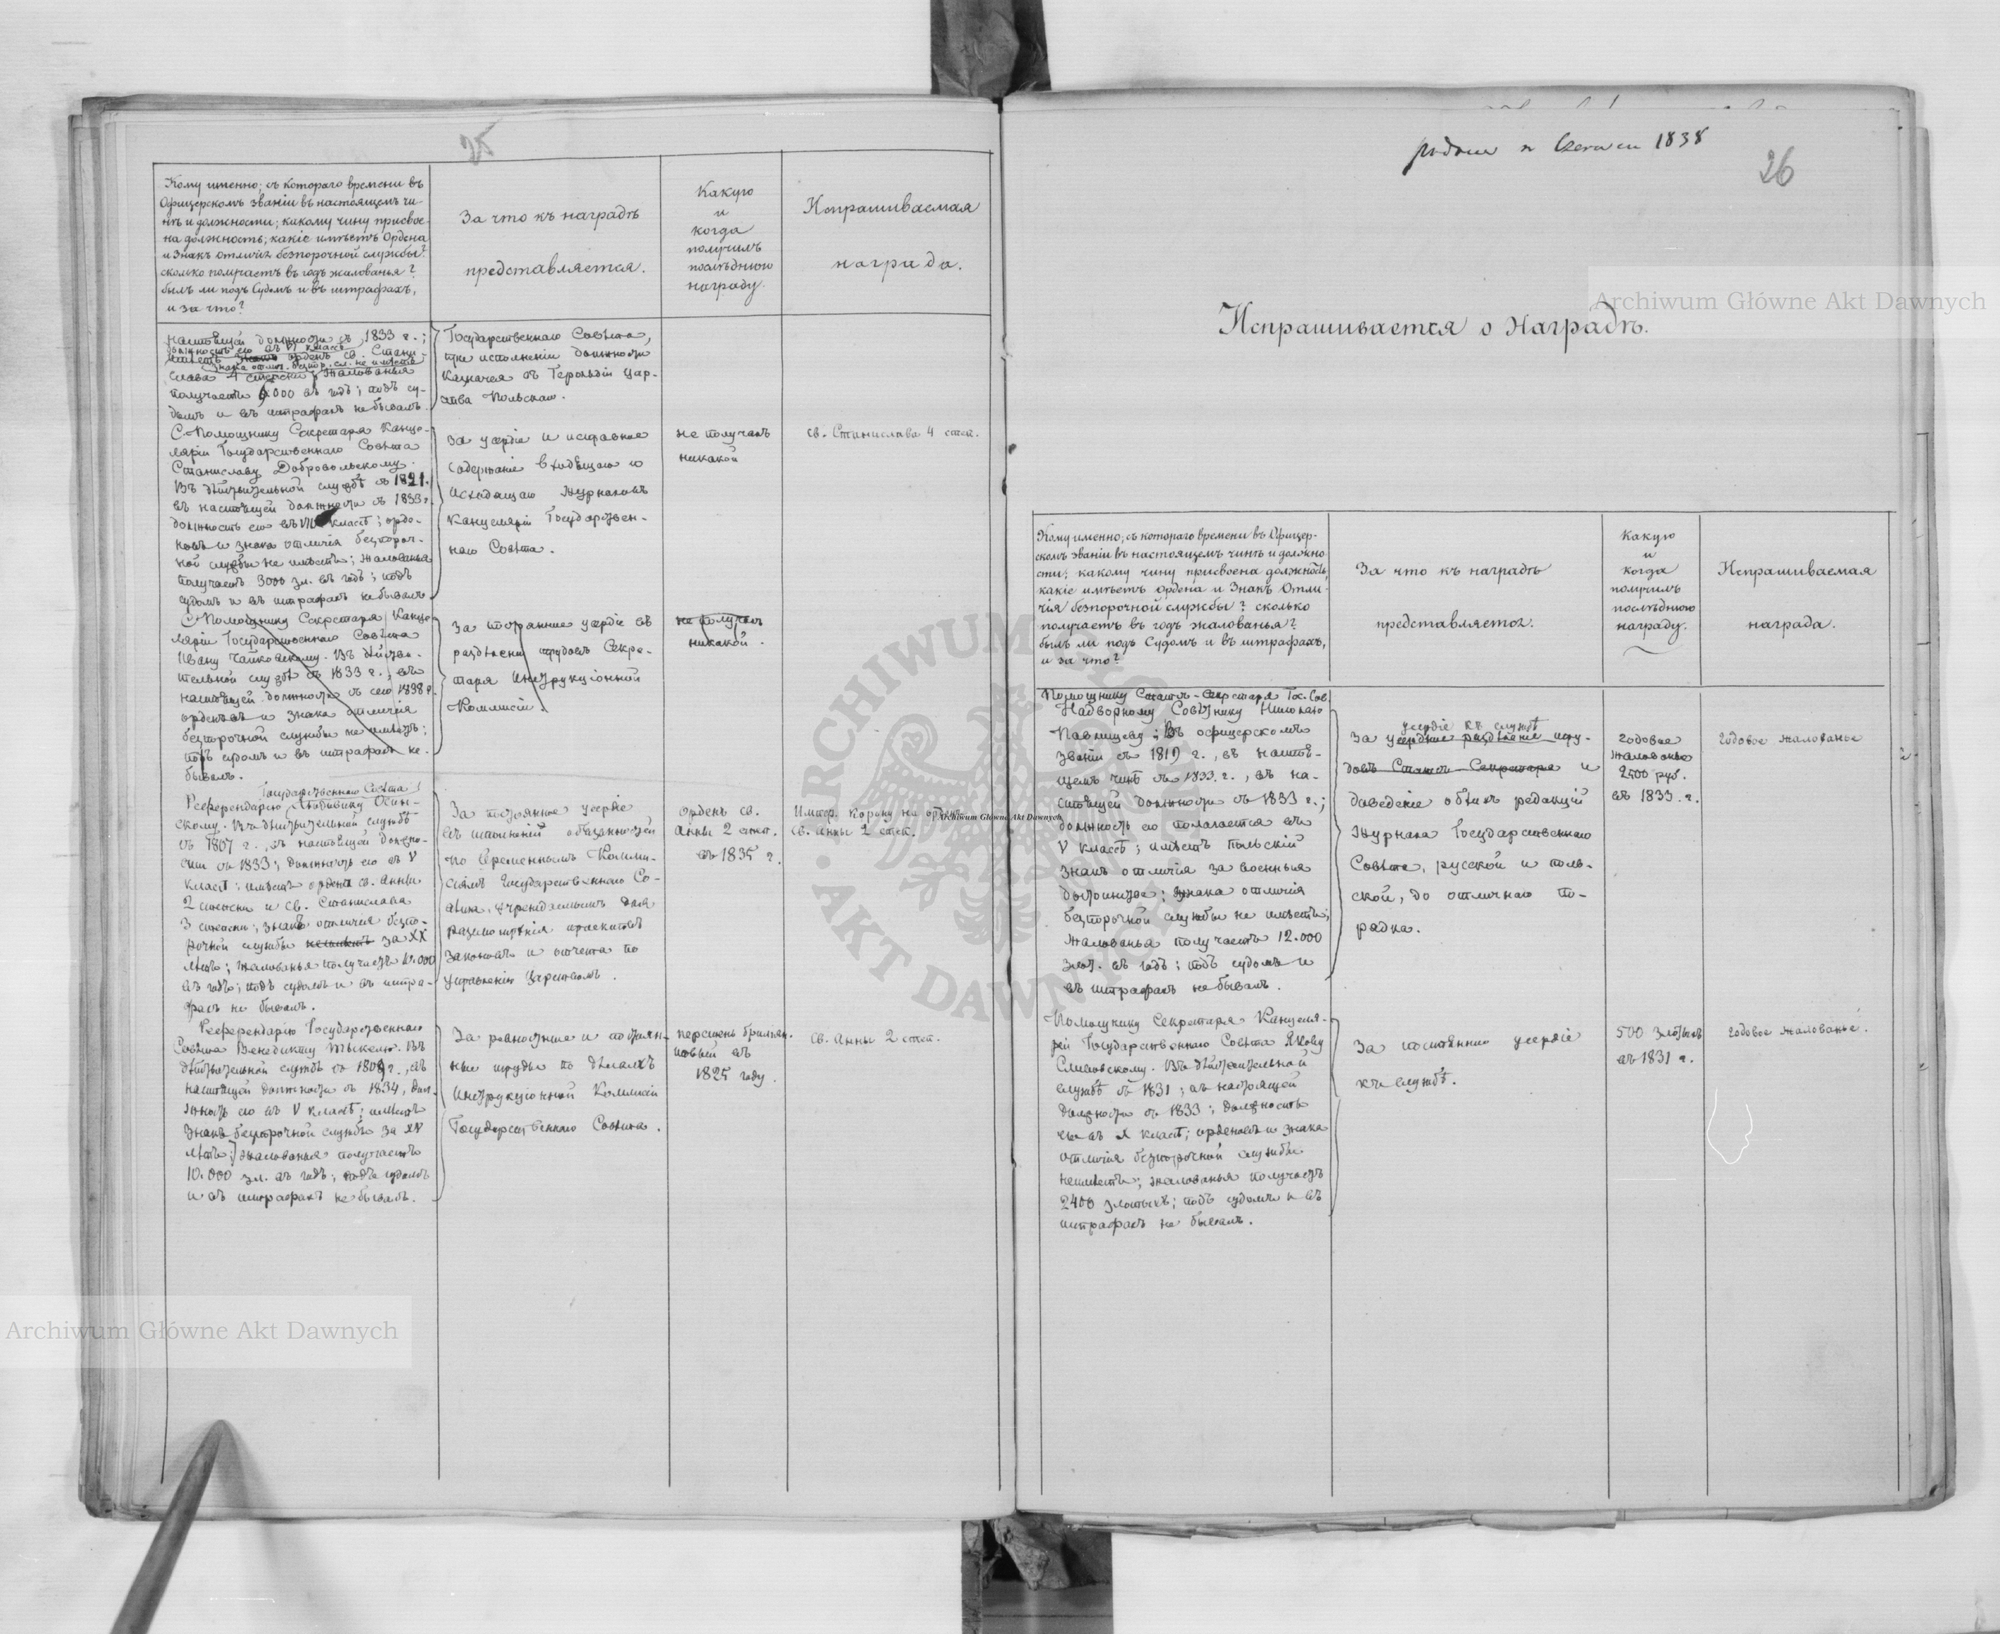 25
Кому именно; съ котораго времени въ
Офицерскомъ званіи въ настоящемъ чи-
нѣ и должности; какому чину присвое-
на должность; какіе имѣетъ Ордена
и Знакъ отличія безпорочной службы?
сколько получаетъ въ годъ жалованья?
былъ ли подъ Судомъ и въ штрафахъ,
и за что?
За что къ наградѣ
представляется.
Какую
и
когда
получилъ
послѣднюю
награду.
Испрашиваемая
награда.
настоящей должности съ 1833 г.;
должность его въ VI классѣ
имѣетъ знакъ орденъ св. Стани-
знака отлич. безпор. сл. не имѣетъ
слава 4 степени; жалованья
получаетъ 000 въ годъ; подъ су-
домъ и въ штрафахъ не бывалъ
Государственнаго Совѣта,
при исполненіи должности
Казначея въ Герольдіи Цар-
ства Польскаго.
С. Помощнику Секретаря Канце-
ляріи Государственнаго Совѣта
Станиславу Добровольскому.
Въ дѣйствительной службѣ съ 1821.
въ настоящей должности съ 1833 г.
должность его въ классѣ; орде-
новъ и знака отличія безпороч-
ной службы не имѣетъ; жалованья
получаетъ 3000 зл. въ годъ; подъ
судомъ и въ штрафахъ не бывалъ
За усердіе и исправное
содержаніе входящаго и
исходящаго журналовъ
Канцеляріи Государствен-
наго Совѣта.
не получалъ
никакой
св. Станислава 4 степ.
С. Помощнику Секретаря Канце-
ляріи Государственнаго Совѣта
Ивану Чайковскому. Въ дѣйстви-
тельной службѣ съ 1833 г., въ
настоящей должности съ сего 1838 г.
орденовъ и знака отличія
безпорочной службы не имѣетъ;
подъ судомъ и въ штрафахъ не
бывалъ.
За постоянное усердіе въ
раздѣленіи трудовъ Секре-
таря Инструкціонной
Коммисіи
не получалъ
никакой.
Государственнаго Совѣта
Референдарію Людвику Осин-
скому. Въ дѣйствительной службѣ
съ 1807 г., въ настоящей должно-
сти съ 1833; должность его въ V
классѣ; имѣетъ ордена св. Анны
2 степени и св. Станислава
3 степени; знакъ отличія безпо-
рочной службы за XX
лѣтъ; жалованья получаетъ 10.000
въ годъ; подъ судомъ и въ штра-
фахъ не бывалъ.
За постоянное усердіе
въ исполненіи обязанностей
по Временнымъ Комми-
сіямъ Государственнаго Со-
вѣта, учрежденнымъ для
разсмотрѣнія проектовъ
законовъ и отчета по
управленію Царствомъ.
орденъ св.
Анны 2 степ.
въ 1835 г.
Импер. Корону на орденъ
св. Анны 2 степ.
Референдарію Государственнаго
Совѣта Венедикту Тыкелю. Въ
дѣйствительной службѣ съ 1809 г., въ
настоящей должности съ 1834, дол-
жность его въ V классѣ; имѣетъ
Знакъ безпорочной службы за XV
лѣтъ; жалованья получаетъ
10.000 зл. въ годъ; подъ судомъ
и въ штрафахъ не бывалъ.
За ревностные и постоян-
ные труды по дѣламъ
Инструкціонной Коммисіи
Государственнаго Совѣта.
перстень брильян-
товый въ
1825 году
св. Анны 2 степ.
podane w Czerwcu 1838
26
Испрашивается о Наградѣ.
Кому именно; съ котораго времени въ Офицер-
скомъ званіи въ настоящемъ чинѣ и должно-
сти; какому чину присвоена должность,
какіе имѣетъ ордена и Знакъ Отли-
чія безпорочной службы? сколько
получаетъ въ годъ жалованья?
былъ ли подъ Судомъ и въ штрафахъ,
и за что?
За что къ наградѣ
представляется.
Какую
и
когда
получилъ
послѣднюю
награду.
Испрашиваемая
награда.
Помощнику Статсъ-Секретаря Гос. Сов.
Надворному Совѣтнику Николаю
Павлищеву; Въ офицерскомъ
званіи съ 1819 г., въ настоя-
щемъ чинѣ съ 1833 г., въ на-
стоящей должности съ 1833 г.;
должность его полагается въ
V классѣ; имѣетъ польскій
знакъ отличія за военныя
достоинства; знака отличія
безпорочной службы не имѣетъ;
жалованья получаетъ 12.000
злот. въ годъ; подъ судомъ и
въ штрафахъ не бывалъ.
усердіе къ службѣ
За усердное раздѣленіе тру-
довъ Статсъ Секретаря и
доведеніе обѣихъ редакцій
журнала Государственнаго
Совѣта, русской и поль-
ской, до отличнаго по-
рядка.
годовое
жалованье
2500 руб.
въ 1833. г.
годовое жалованье
Помощнику Секретаря Канцеля-
ріи Государственнаго Совѣта Якову
Слисовскому. Въ дѣйствительной
службѣ съ 1831; въ настоящей
должности съ 1833; должность
его въ X классѣ; орденовъ и знака
отличія безпорочной службы
не имѣетъ; жалованья получаетъ
2400 злотыхъ; подъ судомъ и въ
штрафахъ не бывалъ.
За постоянное усердіе
къ службѣ.
500 злотыхъ
въ 1831 г.
годовое жалованье.
Archiwum Główne Akt Dawnych
Archiwum Główne Akt Dawnych
Archiwum Główne Akt Dawnych
ARCHIWUM GŁÓWNE
AKT DAWNYCH